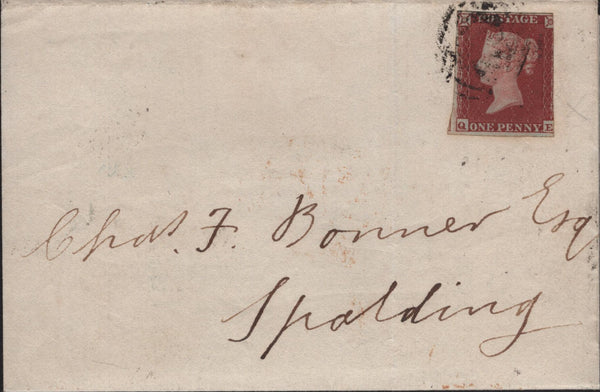 POSTAGE
Q ONE PENNY E
Chas. F. Bonner Esq
Spalding